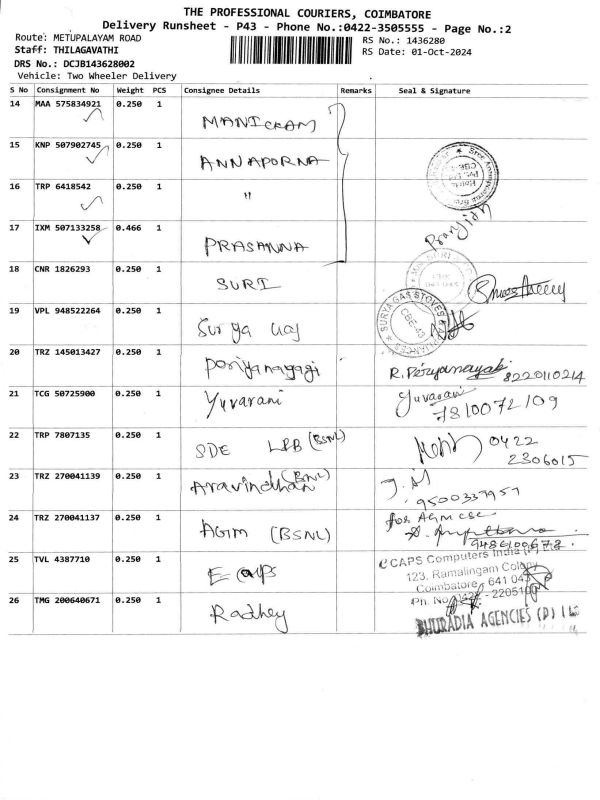 THE PROFESSIONAL COURIERS, COIMBATORE
Delivery Runsheet - P43 - Phone No.:0422-3505555 - Page No.:2
Route: METUPALAYAM ROAD
RS No.: 1436280
Staff: THILAGAVATHI
RS Date: 01-Oct-2024
DRS No.: DCJB143628002
Vehicle: Two Wheeler Delivery
S No Consignment No Weight PCS Consignee Details Remarks Seal & Signature
14 MAA 575834921 0.250 1 MANICKAM
15 KNP 507902745 0.250 1 ANNAPORNA
16 TRP 6418542 0.250 1 "
17 IXM 507133258 0.466 1 PRASANNA
18 CNR 1826293 0.250 1 SURI
19 VPL 948522264 0.250 1 Surya Gas
SURYA GAS STOVES CBE-43
20 TRZ 145013427 0.250 1 periyanayagi R. Periyanayaki 8220110214
21 TCG 50725900 0.250 1 Yuvarani Yuvarani
7810072109
22 TRP 7807135 0.250 1 SDE LRB (BSNL) 0422
2306015
23 TRZ 270041139 0.250 1 Aravindhan (BSNL)
9500337957
24 TRZ 270041137 0.250 1 AGM (BSNL) for AGM CSC
9486100678
25 TVL 4387710 0.250 1 E caps
eCAPS Computers India (P) Ltd
123, Ramalingam Colony
Coimbatore 641 043
Ph. No
26 TMG 200640671 0.250 1 Radhey
BHURADIA AGENCIES (P)